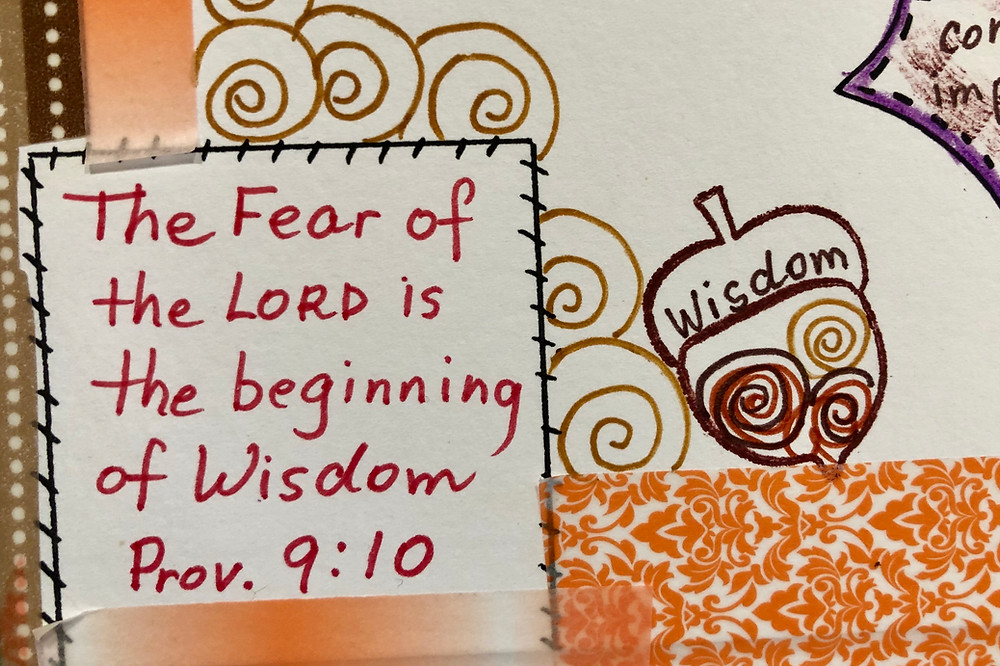 The Fear of
the LORD is
the beginning
of Wisdom
Prov. 9:10
Wisdom